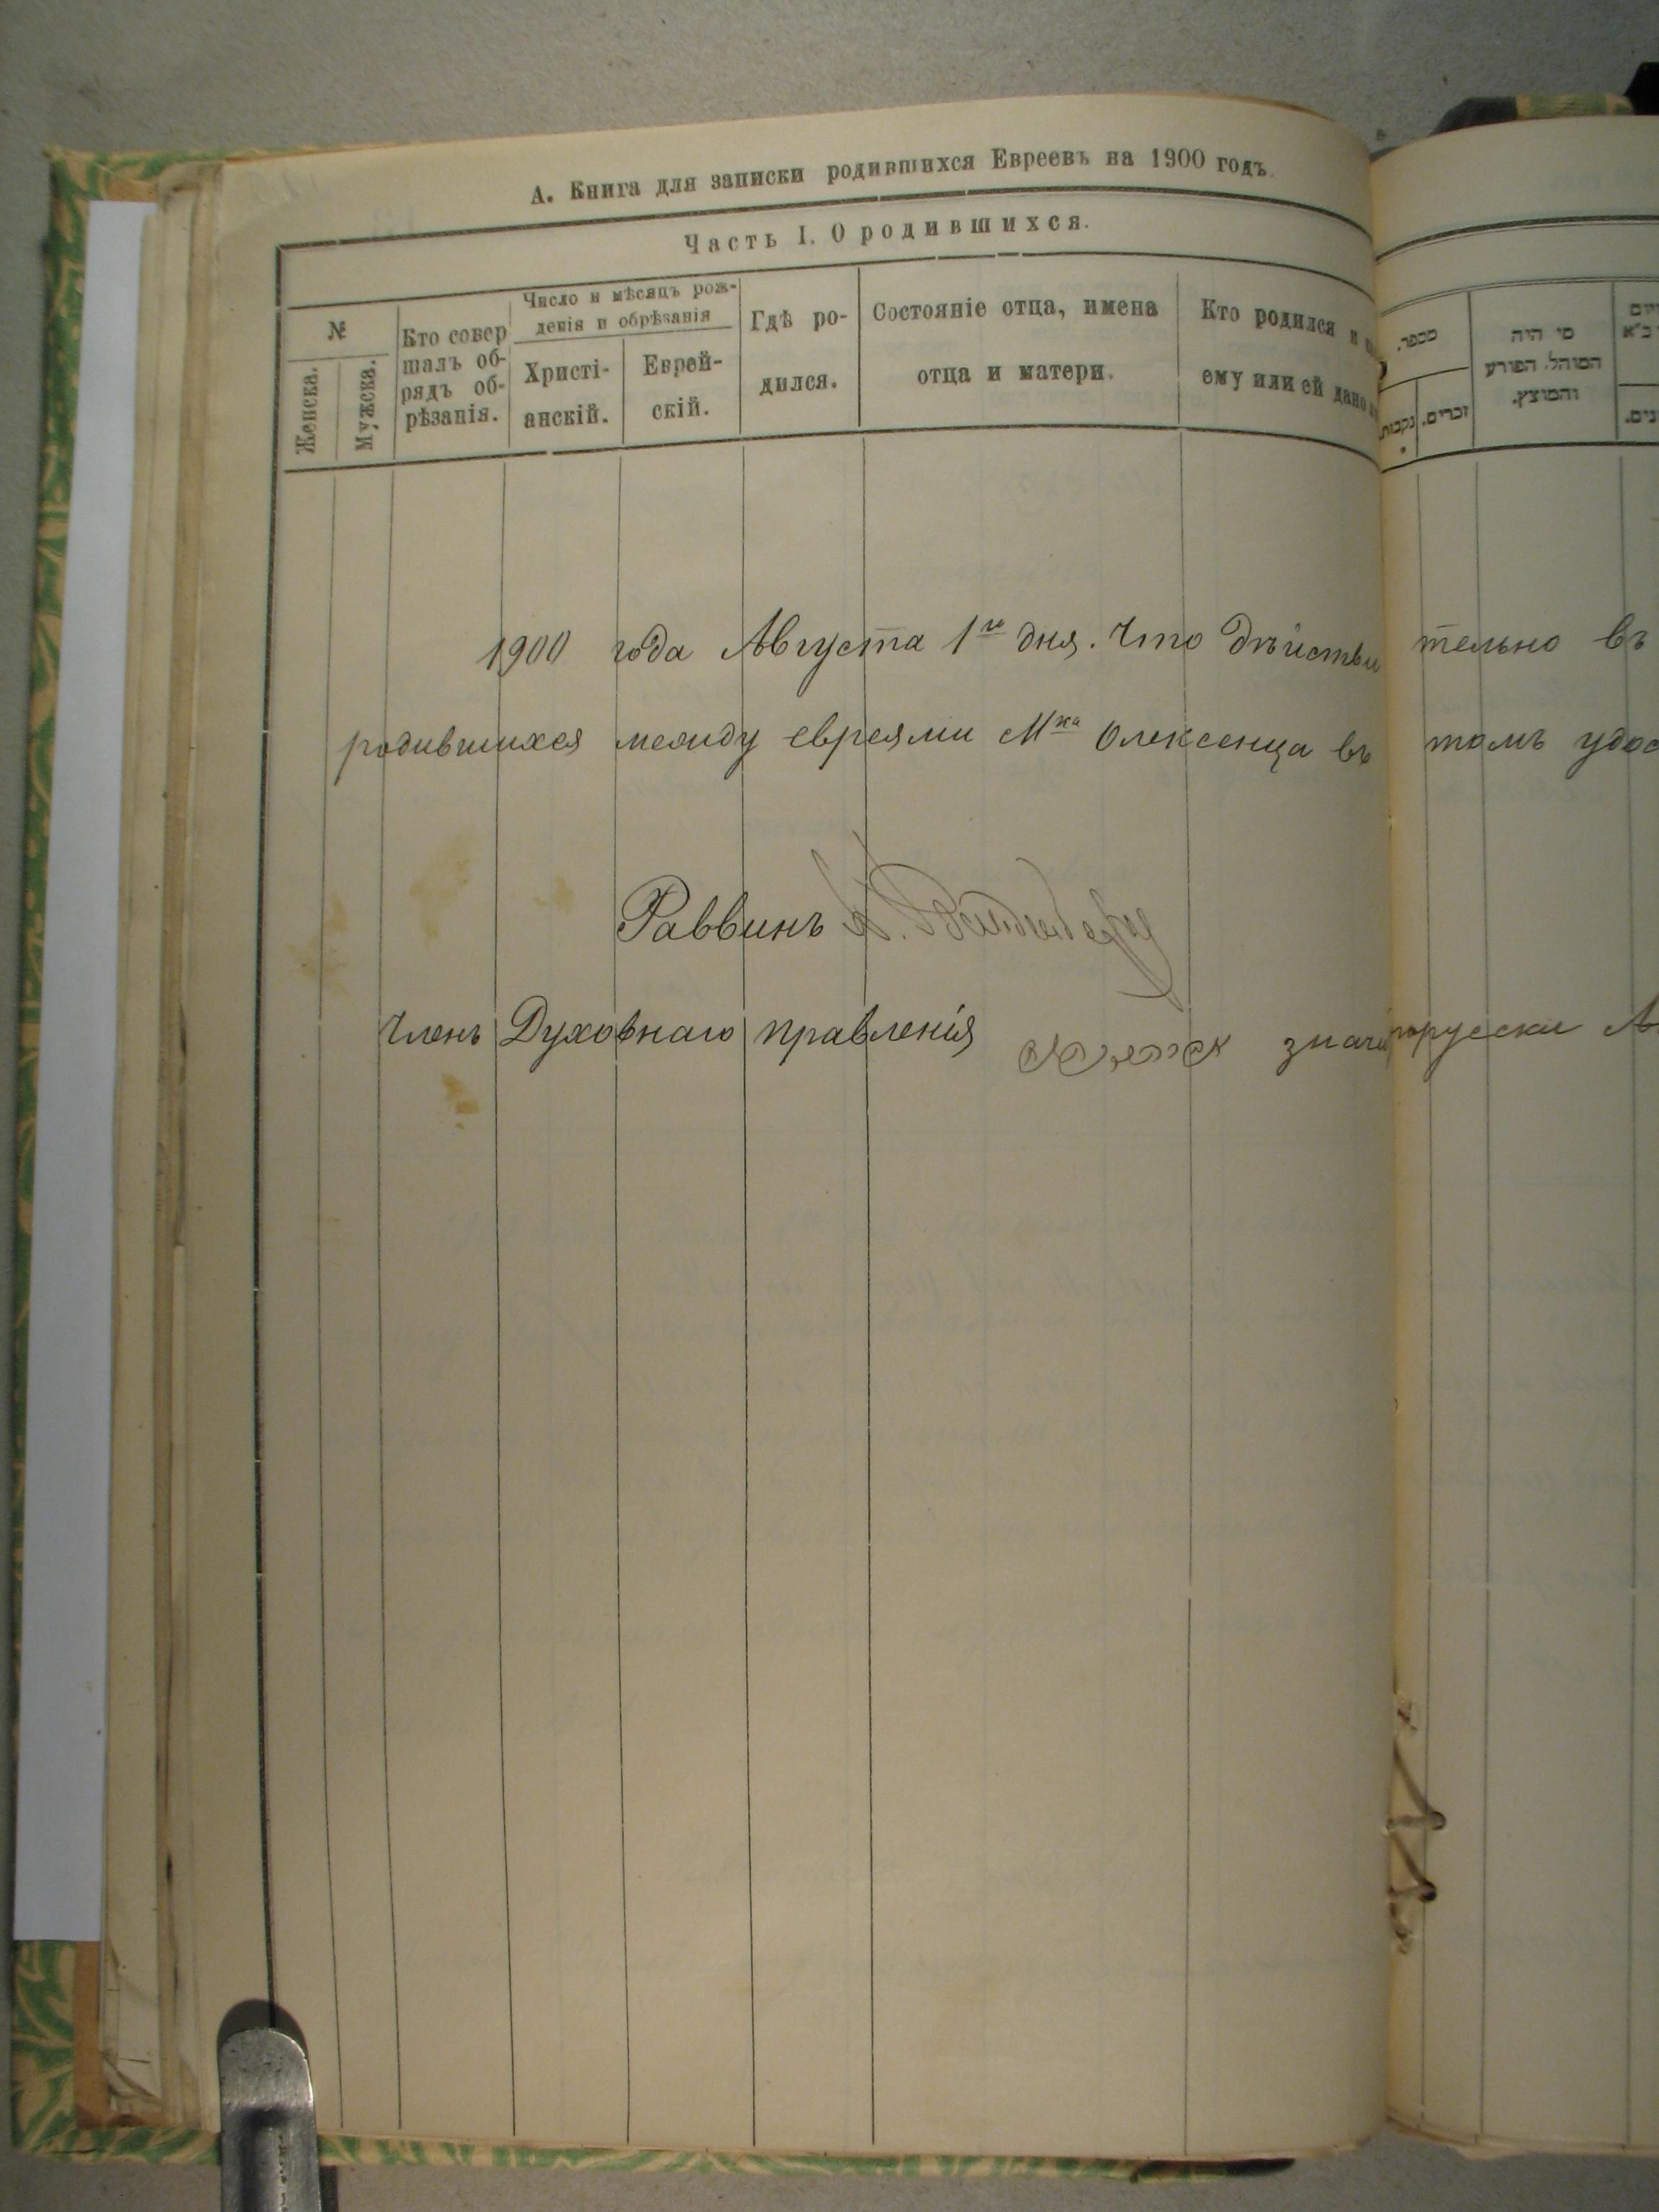 А. Книга для записки родившихся Евреевъ на 1900 годъ.
Часть I. О родившихся.
№
Женска.
Мужска.
Кто совер
шалъ об-
рядъ об-
рѣзанія.
Число и мѣсяцъ рож-
денія и обрѣзанія
Христі-
анскій.
Еврей-
скій.
Гдѣ ро-
дился.
Состояніе отца, имена
отца и матери.
Кто родился и
ему или ей дано
מספר.
נקבות.
זכרים.
מי היה
המוהל הפורע
והמוצץ.
1900 года Августа 1го дня. Что дѣйствительно въ
родившихся между евреями Мка Олексенца въ томъ удос
Раввинъ
Членъ Духовнаго правленія значи порусски А